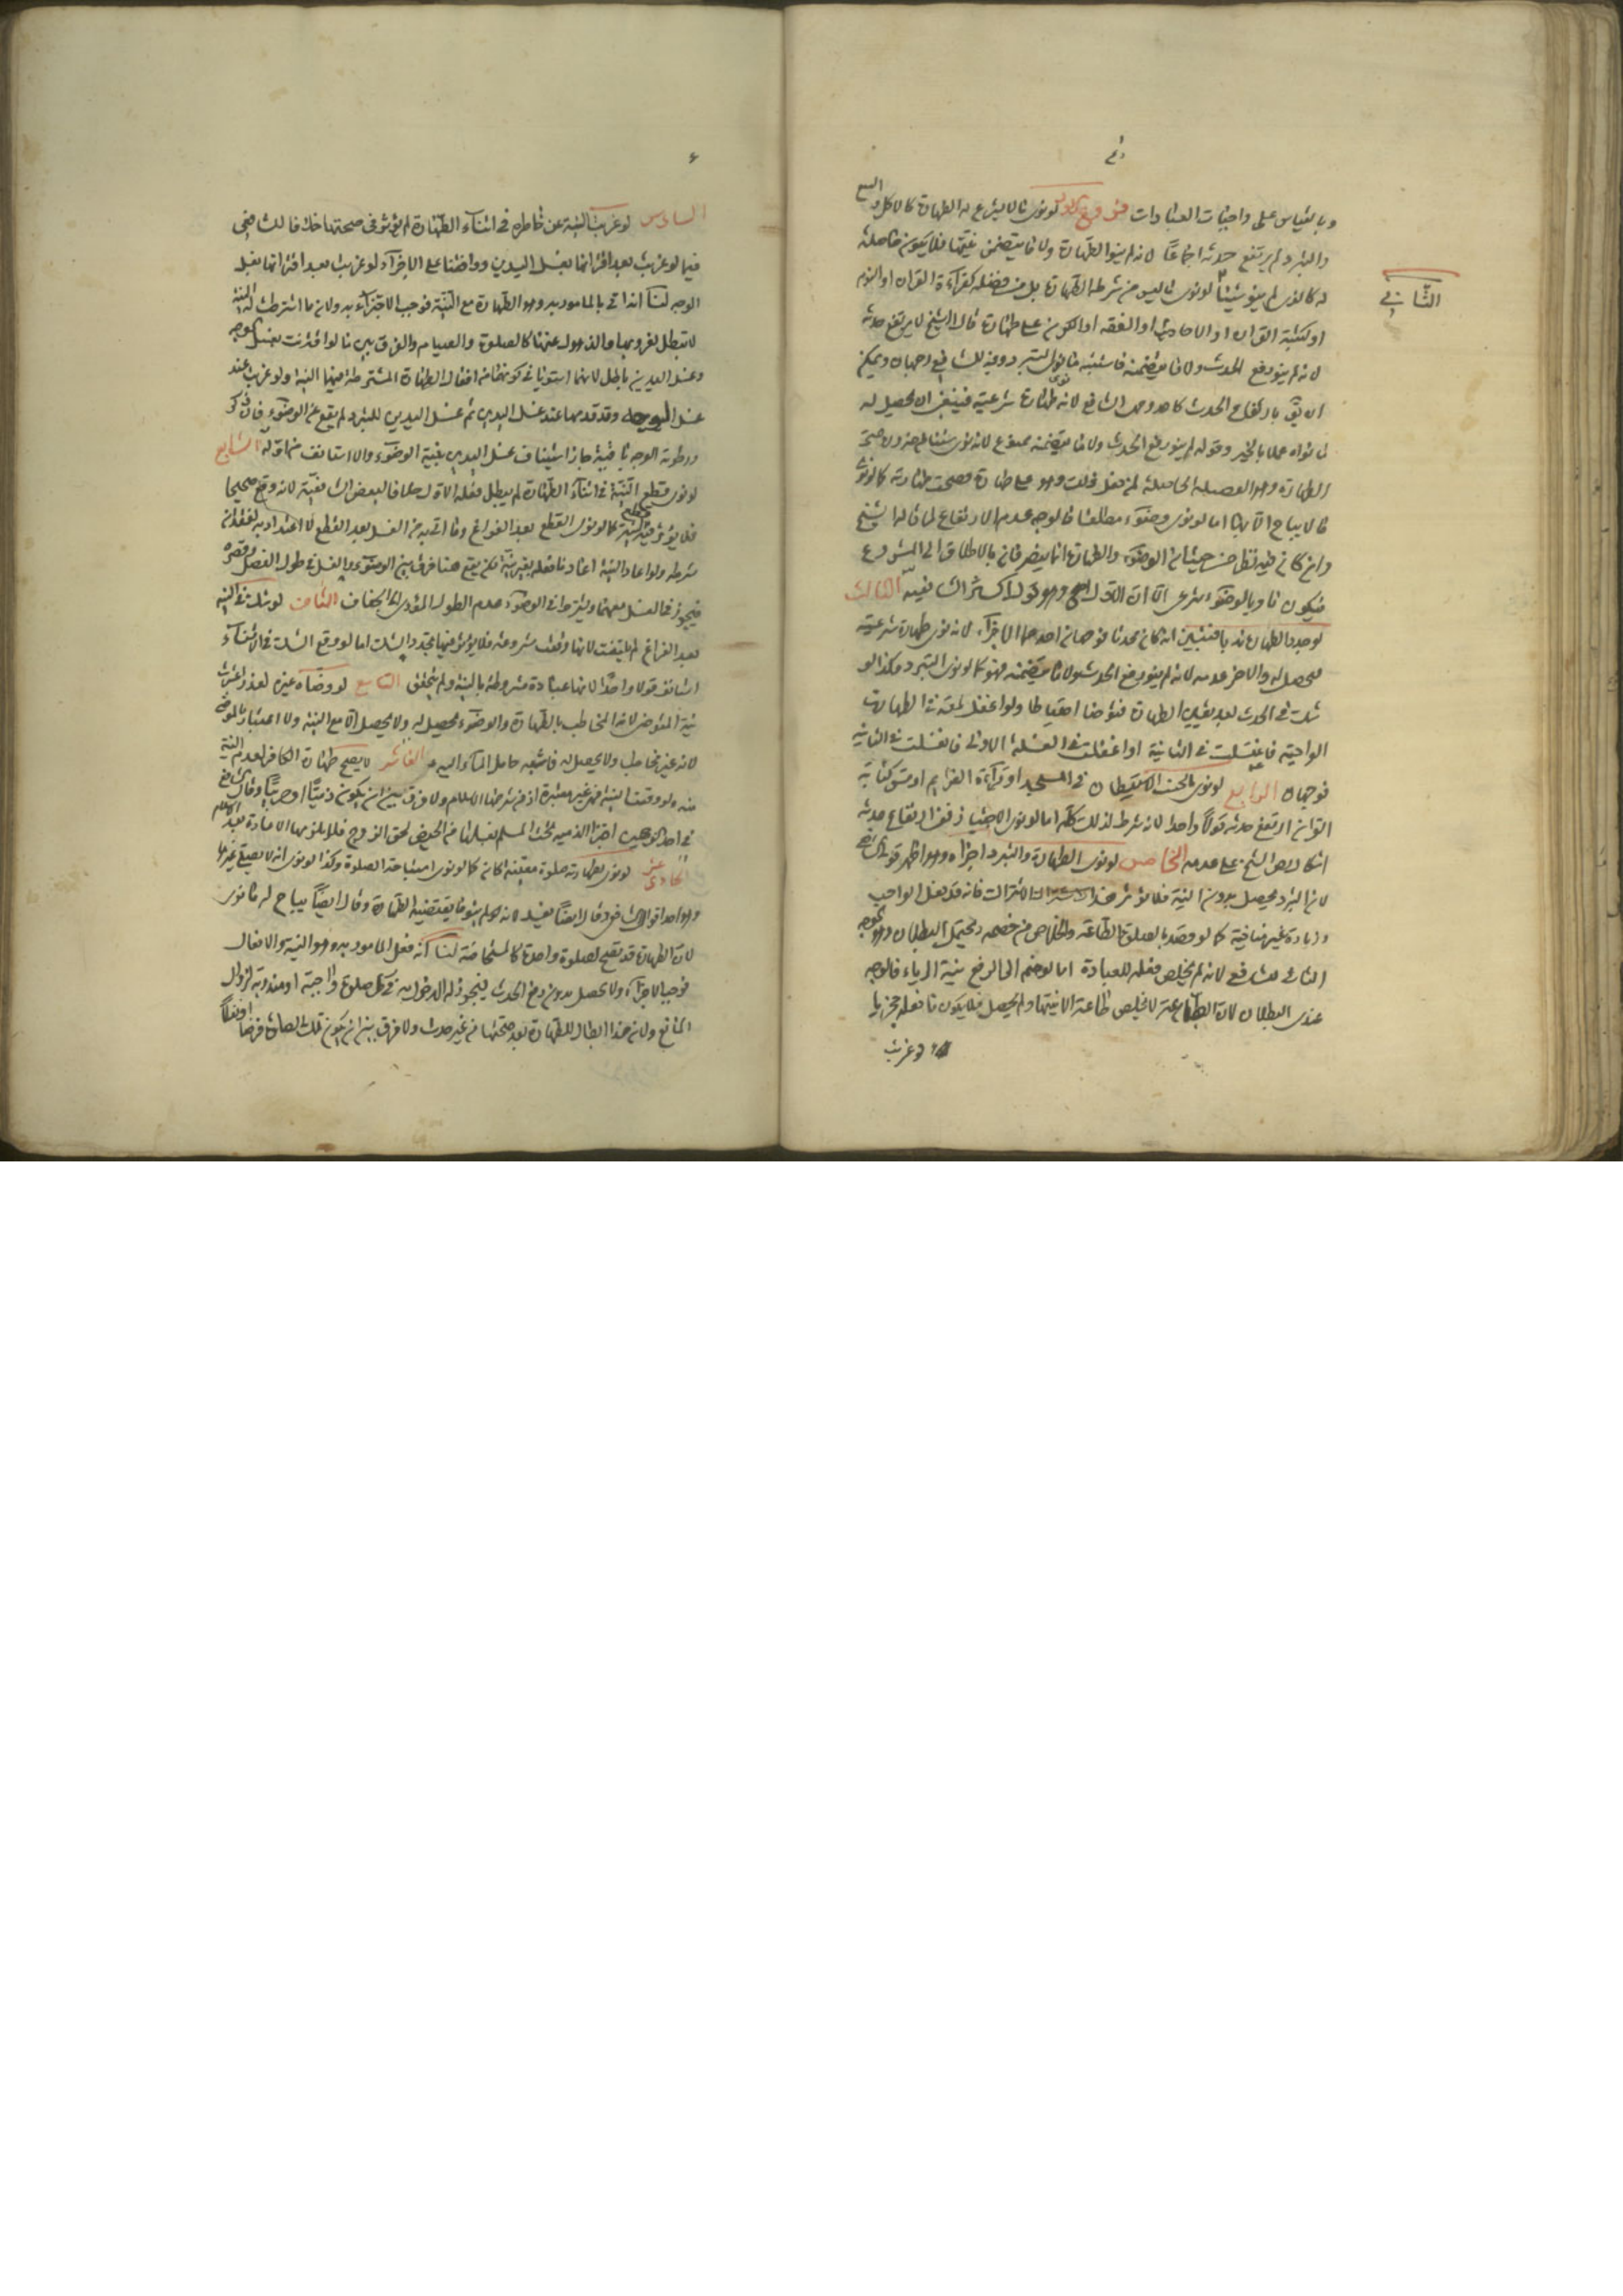 وبالقياس على واجبات العبادات فروع الاول لو نوى ما لا يشرع له الطهارة كالاكل والبيع
والتبرد لم يرتفع حدثه اجماعا لانه لم ينو الطهارة ولا ما يتضمن نيتها فلا يكون حاصلة
له كالذي لم ينو شيئا لو نوى ما ليس من شرطه الطهارة بل من فضله كقراءة القران او النوم
الثاني
او لكتبة القران او الاحاديث او الفقه او الكون على طهارة قال الشيخ لا يرتفع حدثه
لانه لم ينو رفع الحدث ولا ما يتضمنه فاشبه ما نوى التبرد وفيه للشافعي وجهان ويمكن
ان يق بارتفاع الحدث كاحد وجهي الشافعي لانه نوى طهارة شرعية فينبغي ان يحصل له
ما نواه عملا بالخبر وقوله لم ينو رفع الحدث ولا ما يتضمنه ممنوع لانه نوى شيئا من ضرورته صحة
الطهارة وهو الفضيلة الحاصلة لمن فعل ذلك وهو على طهارة فصحت طهارته كما لو نوى
ما لا يباح الا بها اما لو نوى وضوء مطلقا فالوجه عدم الارتفاع لما قاله الشيخ
وان كان فيه نظر من حيث ان الوضوء والطهارة انما ينصرفان بالاطلاق الى المشروع
فيكون ناويا لوضوء شرعي الا ان الاول اصح وهو قول اكثر الشافعية الثالث
لو جدد الطهارة ندبا فتبين انه كان محدثا فوجهان احدهما الاجزاء لانه نوى طهارة شرعية
فيحصل له والاخر عدمه لانه لم ينو رفع الحدث ولا ما يتضمنه فهو كما لو نوى التبرد وكذا لو
شك في الحدث بعد يقين الطهارة فتوضا احتياطا ولو اغفل لمعة في الطهارة
الواجبة فانغسلت في الثانية او اغفلت في الغسلة الاولى فانغسلت في الثانية
فوجهان الرابع لو نوى الجنب الاستيطان في المسجد او قراءة العزائم او مس كتابة
القران ارتفع حدثه قولا واحدا لانه شرط لذلك كله اما لو نوى الاجتياز ففي ارتفاع حدثه
اشكال ونص الشيخ على عدمه الخامس لو نوى الطهارة والتبرد اجزاه وهو اظهر قولي الشافعي
لان التبرد يحصل بدون النية فلا تؤثر هذا الاشتراك فانه قد فعل الواجب
وزيادة غير منافية كما لو قصد بالصلوة الطاعة والخلاص من خصمه ويحتمل البطلان وهو الوجه
الثاني للشافعي لانه لم يخلص فعله للعبادة اما لو ضم الى الرفع نية الرياء فالوجه
عندي البطلان لان الطاعة لا يخلص طاعة الا بنيتها ولم يحصل فلا يكون ما فعله مجزيا
لو عزبت
٤
السادس لو عزبت النية عن خاطره في اثناء الطهارة لم يؤثر في صحتها خلافا للشافعي
فيما لو عزبت بعد اقترانها بغسل اليدين ووافقنا على الاجزاء لو عزبت بعد اقترانها بغسل
الوجه لنا انه اتى بالمامور به وهو الطهارة مع النية فوجب الاجتزاء به ولان ما اشترطت له النية
لا تبطل لغروبها والذهول عنها كالصلوة والصيام والفرق بين ما لو اقترنت بغسل الوجه
وغسل اليدين باطل لانهما استويا في كونهما من افعال الطهارة المشترطة فيها النية ولو عزبت عند
غسل الوجه وقد قدمها عند غسل اليدين ثم غسل اليدين للتبرد لم يقع عن الوضوء فان ذكر
ورطوبة الوجه باقية جاز استيناف غسل اليدين بنية الوضوء والا استانف من اوله السابع
لو نوى قطع النية في اثناء الطهارة لم يبطل فعله الاول خلافا لبعض الشافعية لانه وقع صحيحا
فلا يؤثر فيه قطع النية كما لو نوى القطع بعد الفراغ وما اتى به من الغسل بعد القطع لا اعتداد به لفقدان
شرطه ولو اعاد النية اعاد ما فعله بغير نية لكن يقع هنا فرق بين الوضوء والغسل في طول الفصل وقصره
فيجوز في الغسل معهما ويشترط في الوضوء عدم الطول المؤدي الى الجفاف الثامن لو شك في النية
بعد الفراغ لم يلتفت لانها وقعت مشروعة فلا يؤثر فيها تجدد الشك اما لو وقع الشك في الاثناء
استانف قولا واحدا لانها عبادة مشروطة بالنية ولم يتحقق التاسع لو وضاه غيره لعذر اعتبرت
نية المتوضي لانه المخاطب بالطهارة والوضوء يحصل له ولا يحصل الا مع النية ولا اعتبار بالموضي
لانه غير مخاطب ولا يحصل له فاشبه حامل الماء اليه العاشر لا يصح طهارة الكافر لعدم النية
منه ولو وقعت النية فهي غير معتبرة اذ من شرطها الاسلام ولا فرق بين ان يكون ذميا او حربيا وقال الشافعي
في احد الوجهين اجزا الذمية تحت المسلم غسلها من الحيض لحق الزوج فلا يلزمها الاعادة بعد الاسلام
الحادي عشر لو نوى بطهارته صلوة معينة كان كما لو نوى استباحة الصلوة وكذا لو نوى انه لا يصلي غيرها
وهو احد اقوال الشافعي وقال ايضا يفسد لانه لم ينو ما يقتضيه الطهارة وقال ايضا يباح له ما نوى
لان الطهارة قد تصح لصلوة واحدة كالمستحاضة لنا انه فعل المامور به وهو النية والافعال
فوجب الاجزاء ولا يحصل بدون رفع الحدث فيجوز له الدخول به في كل صلوة واجبة او مندوبة لزوال
المانع ولان هذا ابطال للطهارة بعد صحتها من غير حدث ولا فرق بين ان يكون تلك الصلوة فرضا او نفلا